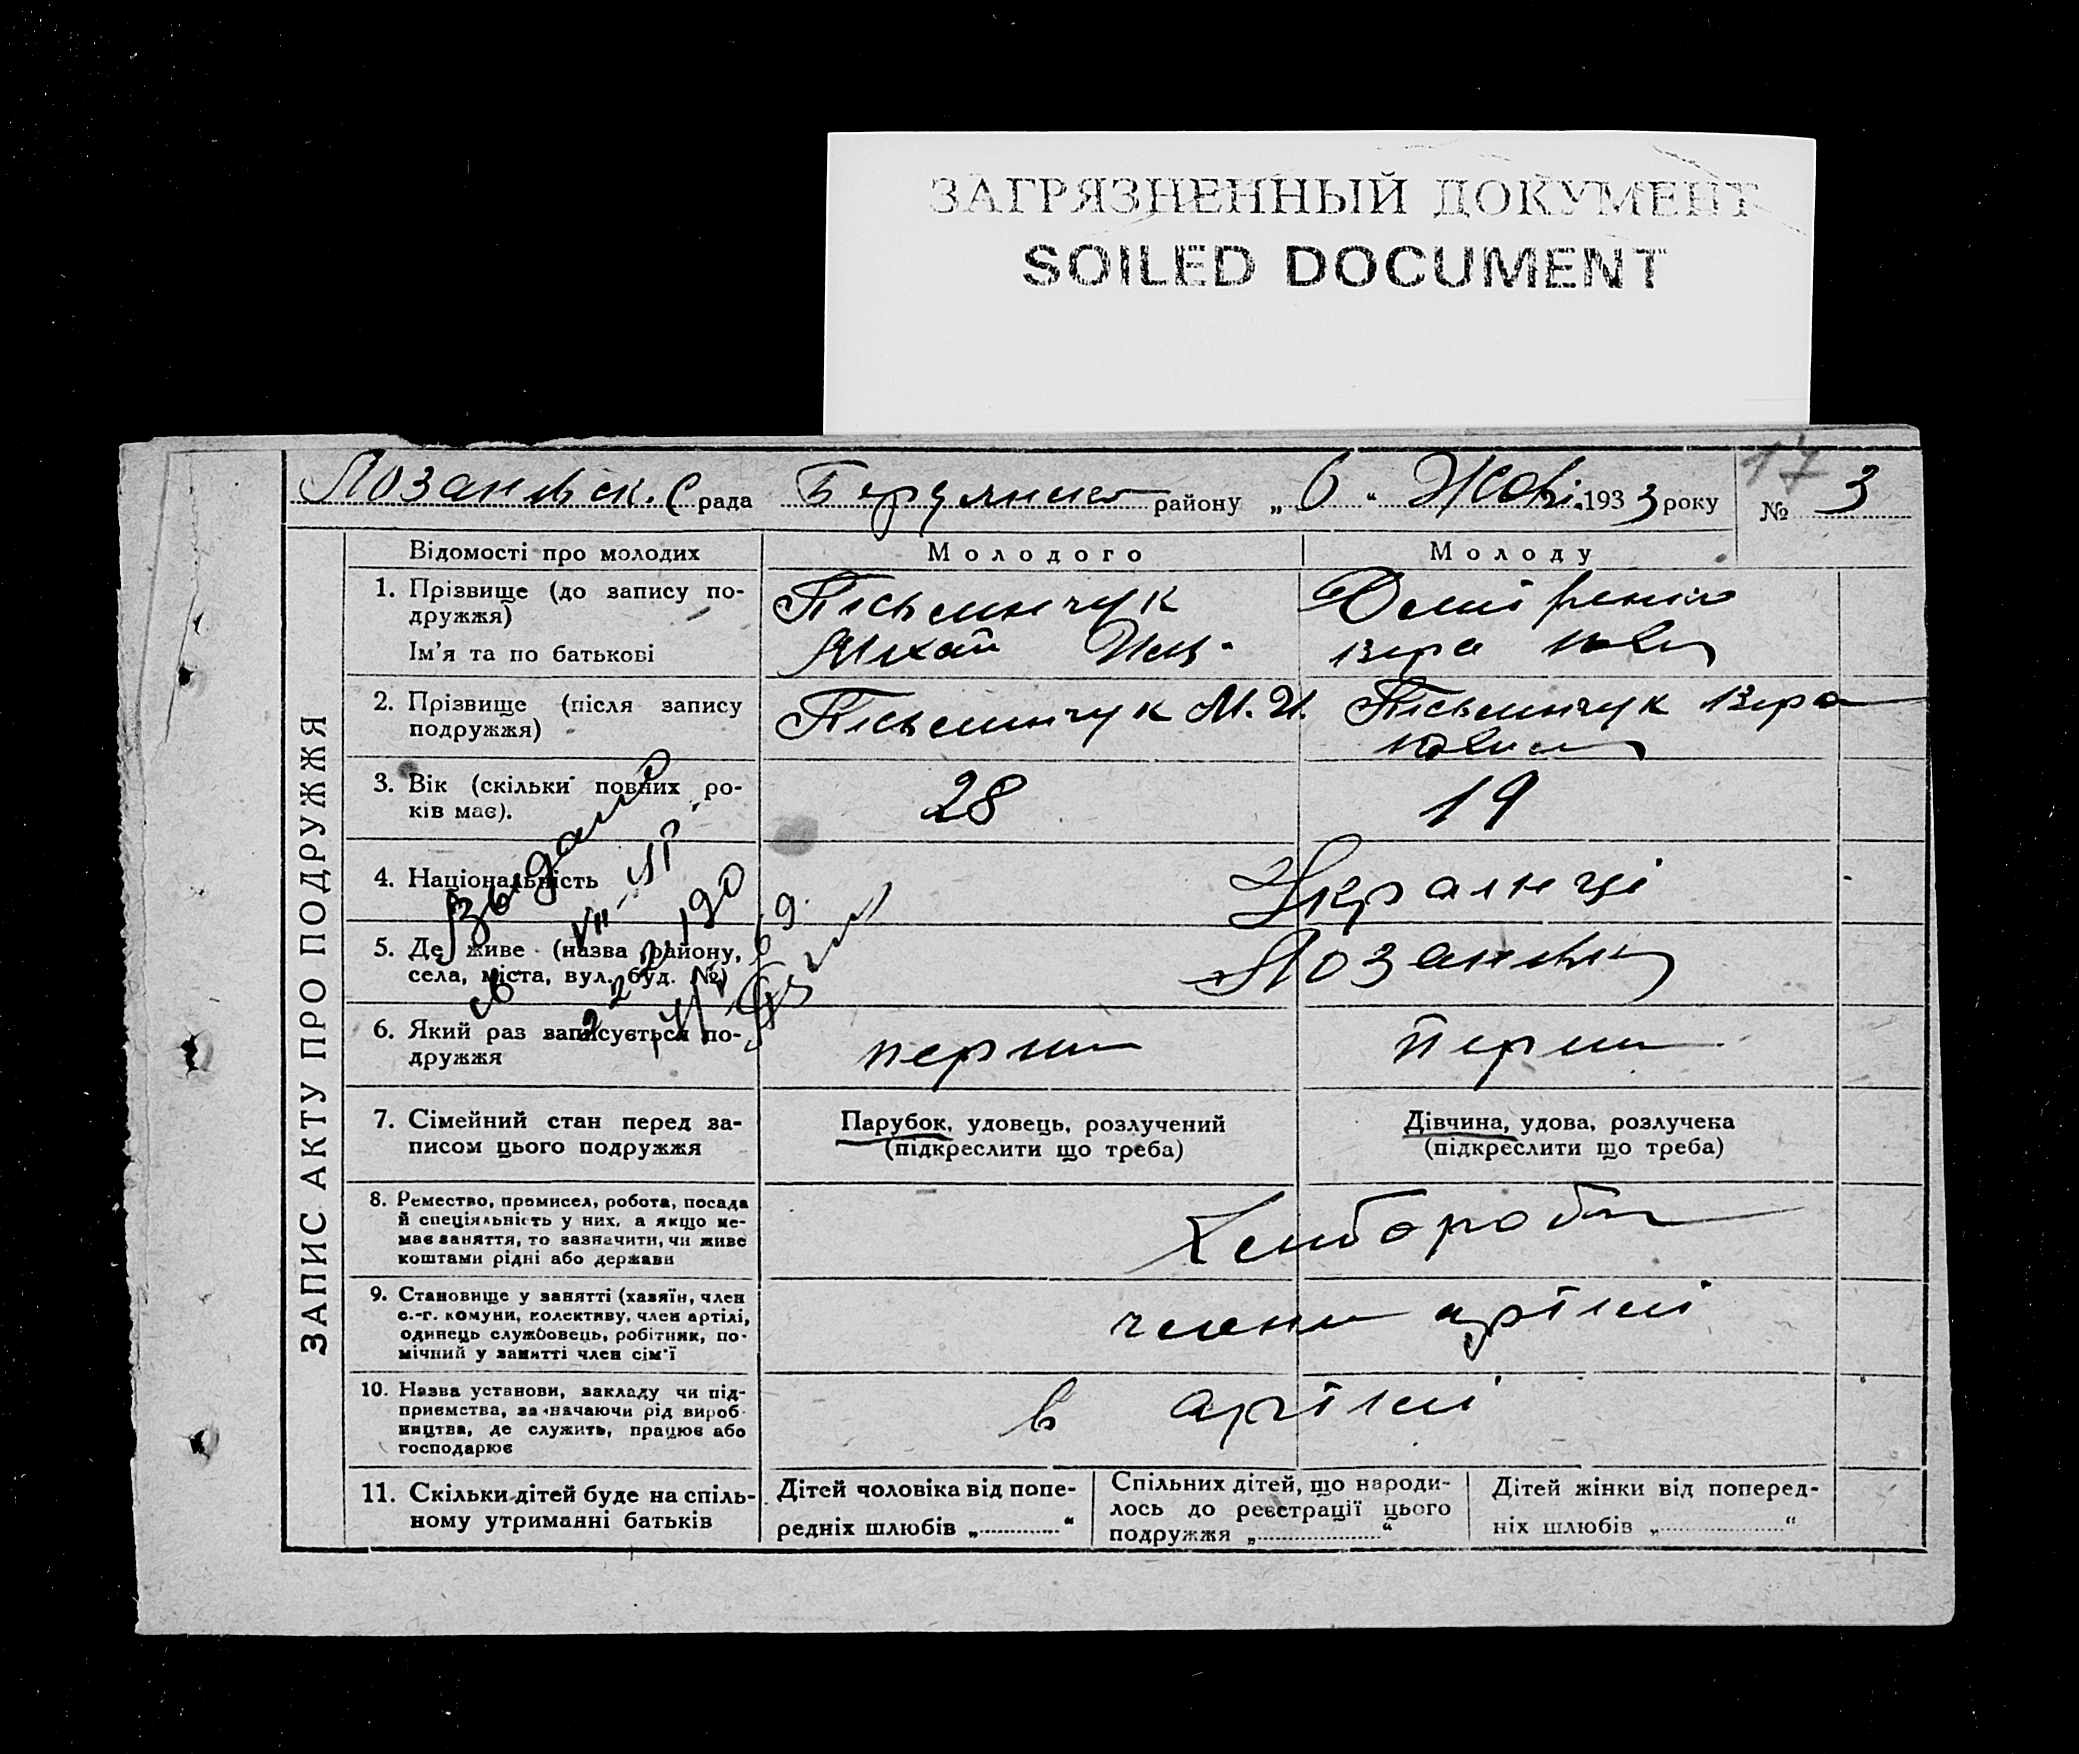 ЗАГРЯЗНЕННЫЙ ДОКУМЕНТ
SOILED DOCUMENT
17
Лозанівськ. С рада Бердянського району „6“ Жовт. 1933 року № 3
ЗАПИС АКТУ ПРО ПОДРУЖЖЯ
Відомості про молодих Молодого Молоду
1. Прізвище (до запису по-
дружжя)
Письминчук
Ім'я та по батькові
Михай
Вера
2. Прізвище (після запису
подружжя)
Письминчук М. И. Письминчук Вера
3. Вік (скільки повних ро-
ків має).
28 19
4. Національність
Українці
5. Де живе (назва району,
села, міста, вул. буд. №)
Лозанівки
6. Який раз записується по-
дружжя
перши перши
7. Сімейний стан перед за-
писом цього подружжя
Парубок, удовець, розлучений
(підкреслити що треба)
Дівчина, удова, розлучека
(підкреслити що треба)
8. Ремество, промисел, робота, посада
й спеціяльність у них, а якщо не-
має заняття, то зазначити, чи живе
коштами рідні або держави
Хлібороби
9. Становище у занятті (хазяїн, член
с.-г. комуни, колективу, член артілі,
одинець службовець, робітник, по-
мічний у занятті член сім'ї
члени артілі
10. Назва установи, закладу чи під-
приємства, зазначаючи рід вироб-
ництва, де служить, працює або
господарює
в артілі
11. Скільки дітей буде на спіль-
ному утриманні батьків
Дітей чоловіка від попе-
редніх шлюбів „ “
Спільних дітей, що народи-
лось до реєстрації цього
подружжя „ “
Дітей жінки від поперед-
ніх шлюбів „ “